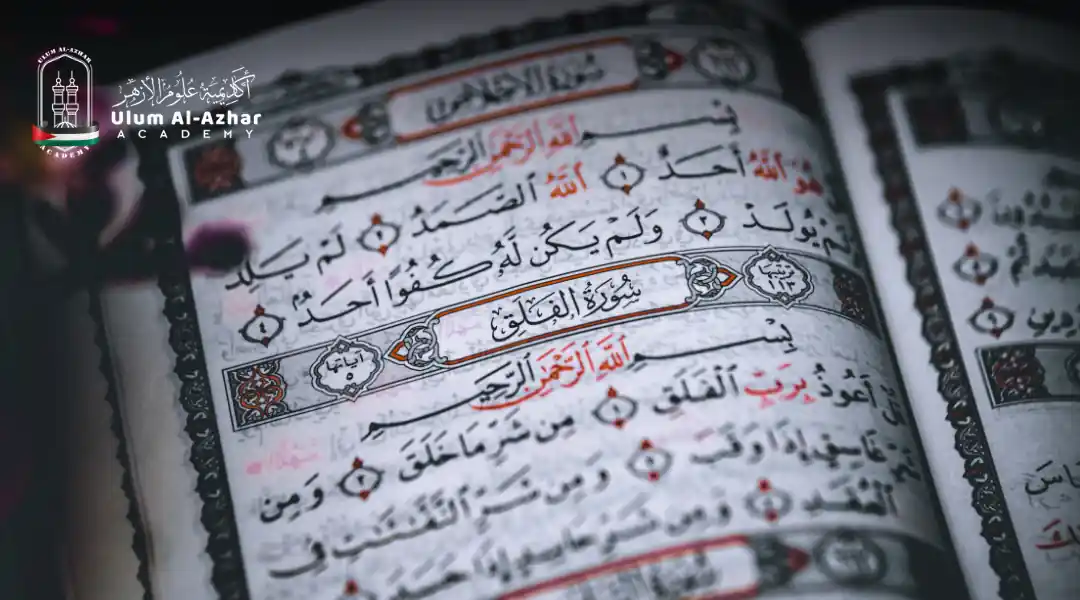 ULUM AL-AZHAR
ACADEMY
أكاديمية علوم الأزهر
Ulum Al-Azhar
ACADEMY
سُورَةُ الإخلاص
بِسْمِ ٱللَّهِ ٱلرَّحْمَٰنِ ٱلرَّحِيمِ
هُوَ ٱللَّهُ أَحَدٌ ١ ٱللَّهُ ٱلصَّمَدُ ٢ لَمْ يَلِدْ
لَمْ يُولَدْ ٣ وَلَمْ يَكُن لَّهُۥ كُفُوًا أَحَدٌۢ ٤
سُورَةُ الفَلَقِ
ترتيبها ١١٣
آياتها ٥
بِسْمِ ٱللَّهِ ٱلرَّحْمَٰنِ ٱلرَّحِيمِ
قُلْ أَعُوذُ بِرَبِّ ٱلْفَلَقِ ١ مِن شَرِّ مَا خَلَقَ ٢ وَمِن
شَرِّ غَاسِقٍ إِذَا وَقَبَ ٣ وَمِن شَرِّ ٱلنَّفَّٰثَٰتِ فِى
ٱلْعُقَدِ ٤ وَمِن شَرِّ حَاسِدٍ إِذَا حَسَدَ